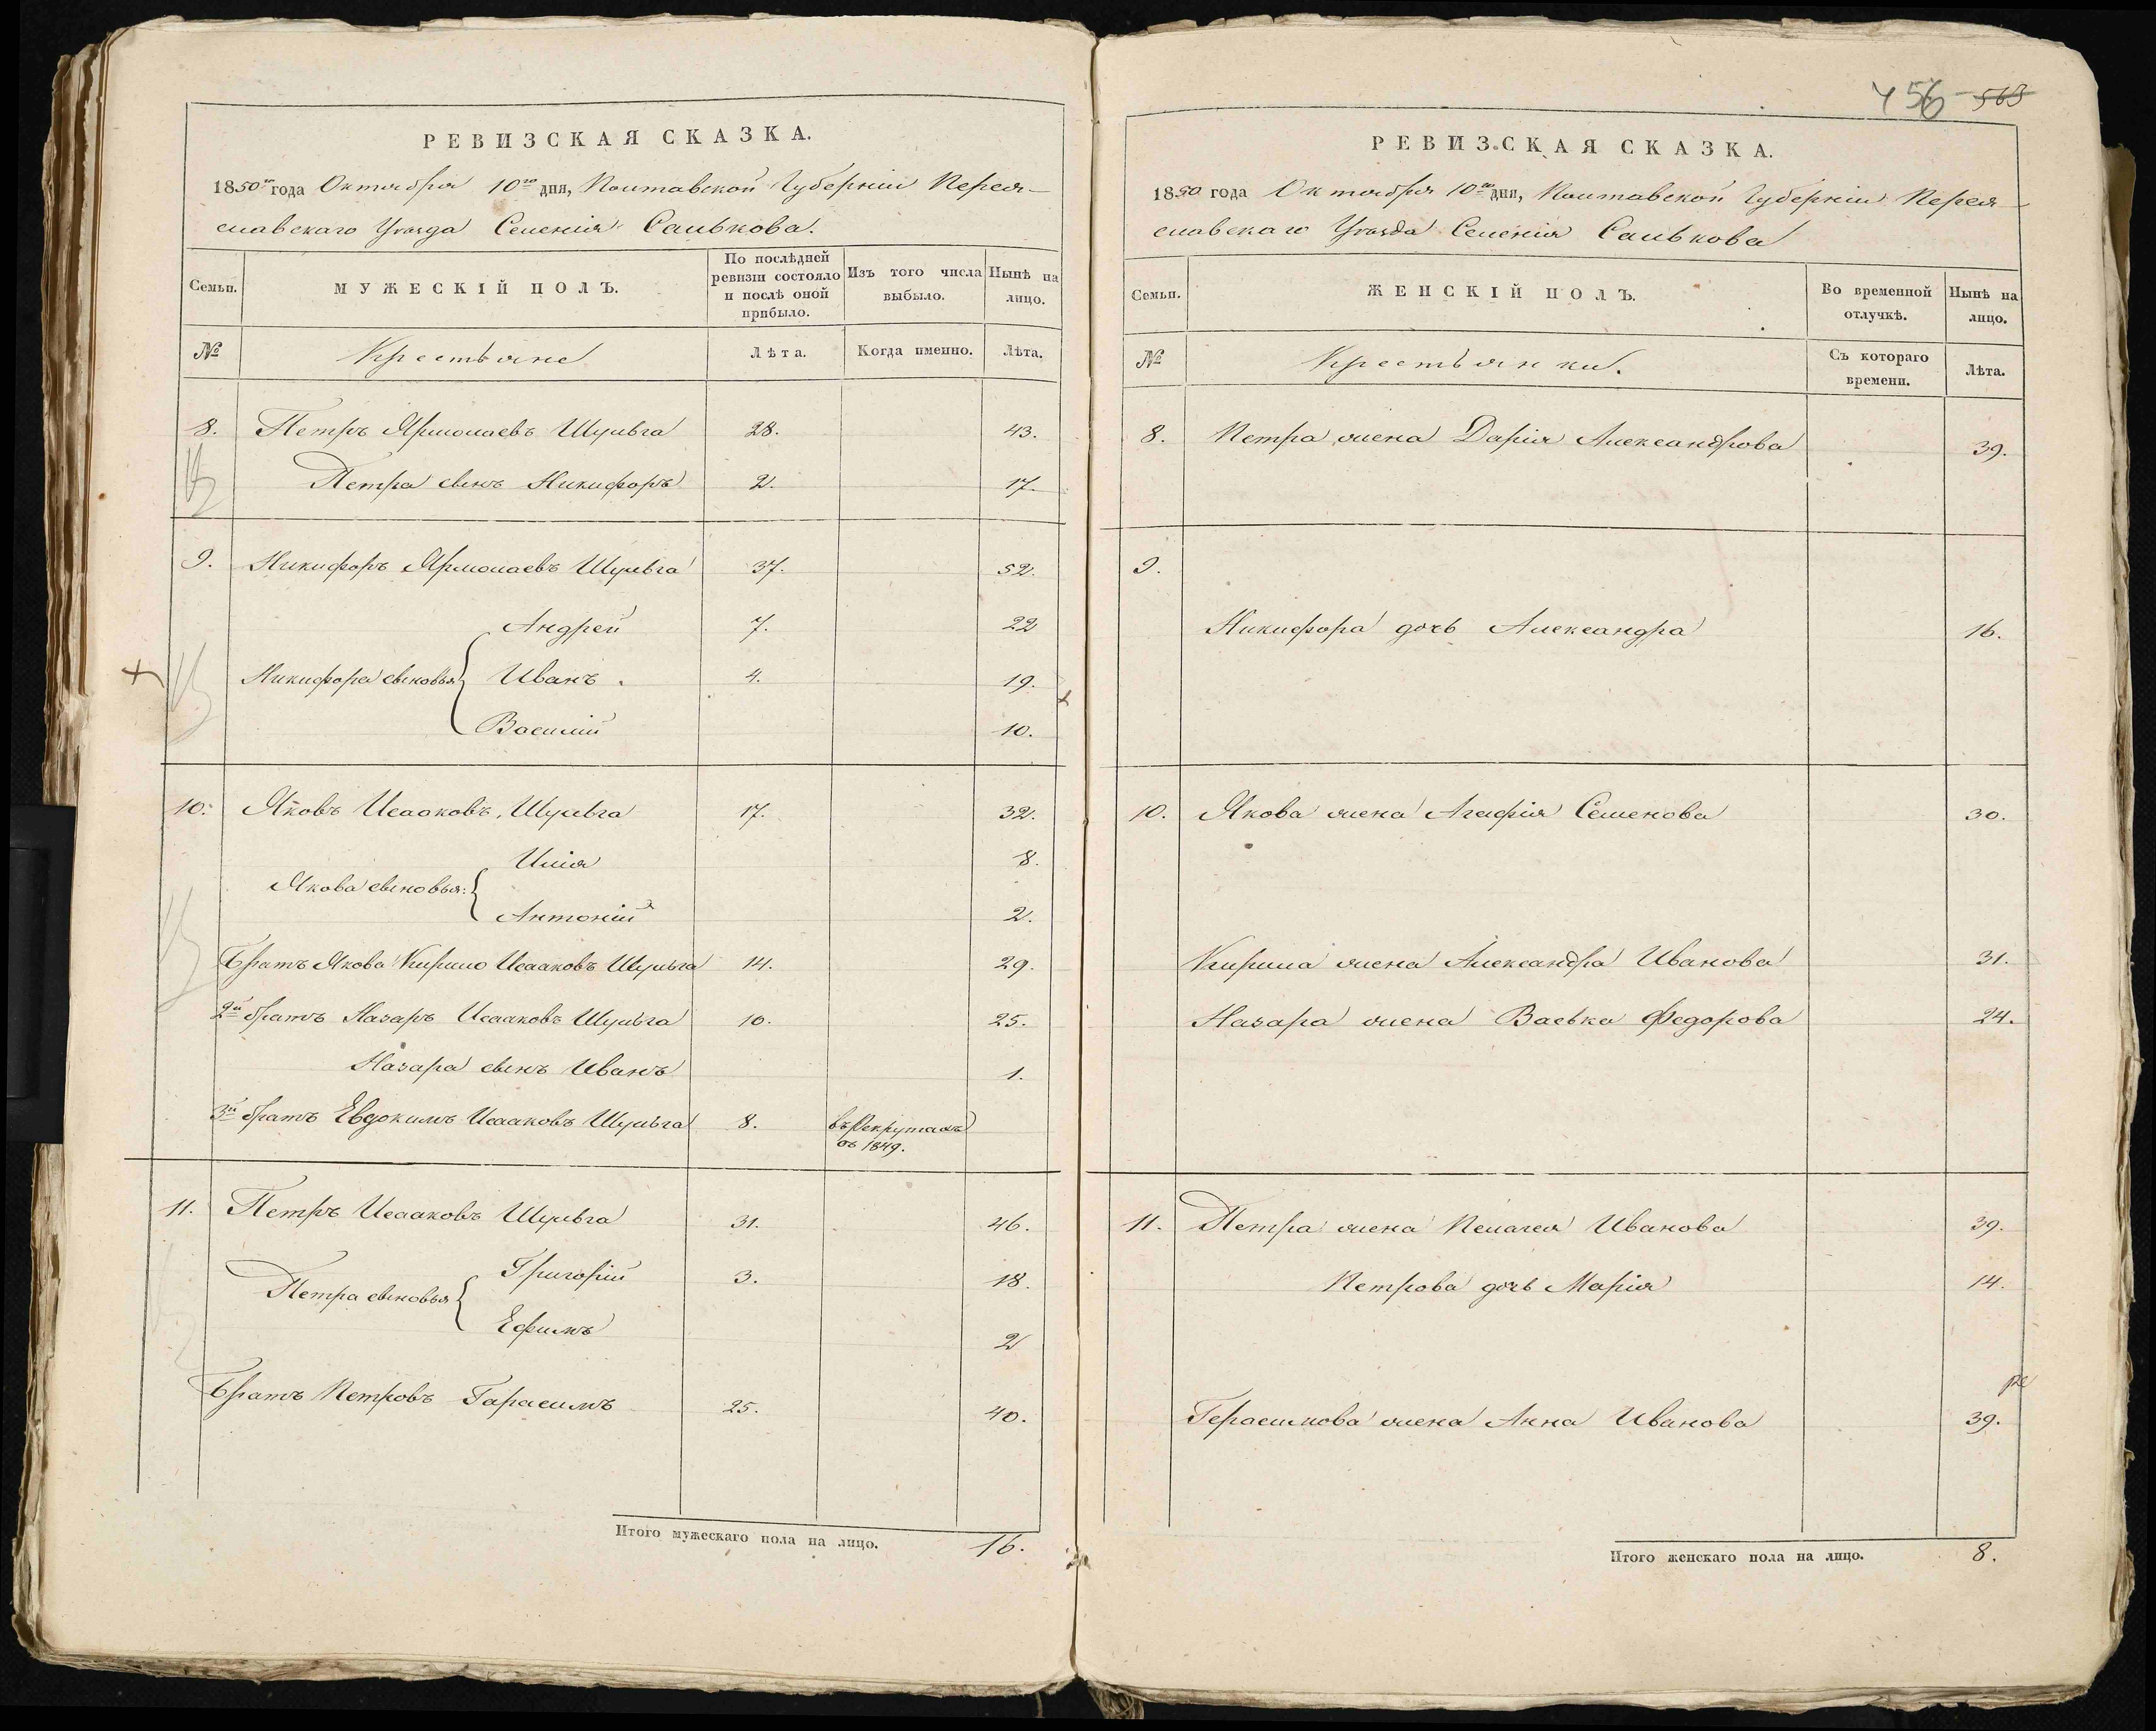 РЕВИЗСКАЯ СКАЗКА.
1850го года Октября 10го дня, Полтавской Губерніи Перея-
славскаго Уѣзда Селенія Салькова.
Семьи.
МУЖЕСКІЙ ПОЛЪ.
По послѣдней ревизіи состояло и послѣ оной прибыло.
Изъ того числа выбыло.
Нынѣ на лицо.
№
Крестьяне
Лѣта.
Когда именно.
Лѣта.
8. Петръ Ярмолаевъ Шульга 28. 43.
Петра сынъ Никифоръ 2. 17.
9. Никифоръ Ярмолаевъ Шульга 37. 52.
Андрей 7. 22
Никифора сыновья Иванъ 4. 19.
Василій 10.
10. Яковъ Исааковъ Шульга 17. 32.
Илія 8.
Якова сыновья:
Антоній 2.
Братъ Якова Кирило Исааковъ Шульга 14. 29.
2й братъ Назаръ Исааковъ Шульга 10. 25.
Назара сынъ Иванъ 1.
3й братъ Евдокимъ Исааковъ Шульга 8. въ Рекрутахъ
съ 1849.
11. Петръ Исааковъ Шульга 31. 46.
Григорій 3. 18.
Петра сыновья
Ефимъ 2
Братъ Петровъ Гарасимъ 25. 40.
Итого мужескаго пола на лицо. 16.
456 563
РЕВИЗСКАЯ СКАЗКА.
1850 года Октября 10го дня, Полтавской Губерніи Перея-
славскаго Уѣзда Селенія Салькова
Семьи.
ЖЕНСКІЙ ПОЛЪ.
Во временной отлучкѣ.
Нынѣ на лицо.
№
Крестьянки.
Съ котораго времени.
Лѣта.
8. Петра жена Дарія Александрова 39.
9.
Никифора дочь Александра 16.
10. Якова жена Агафія Семенова 30.
Кирила жена Александра Иванова 31.
Назара жена Васька Федорова 24.
11. Петра жена Пелагея Иванова 39.
Петрова дочь Марія 14.
Герасимова жена Анна Иванова 39.
Итого женскаго пола на лицо. 8.